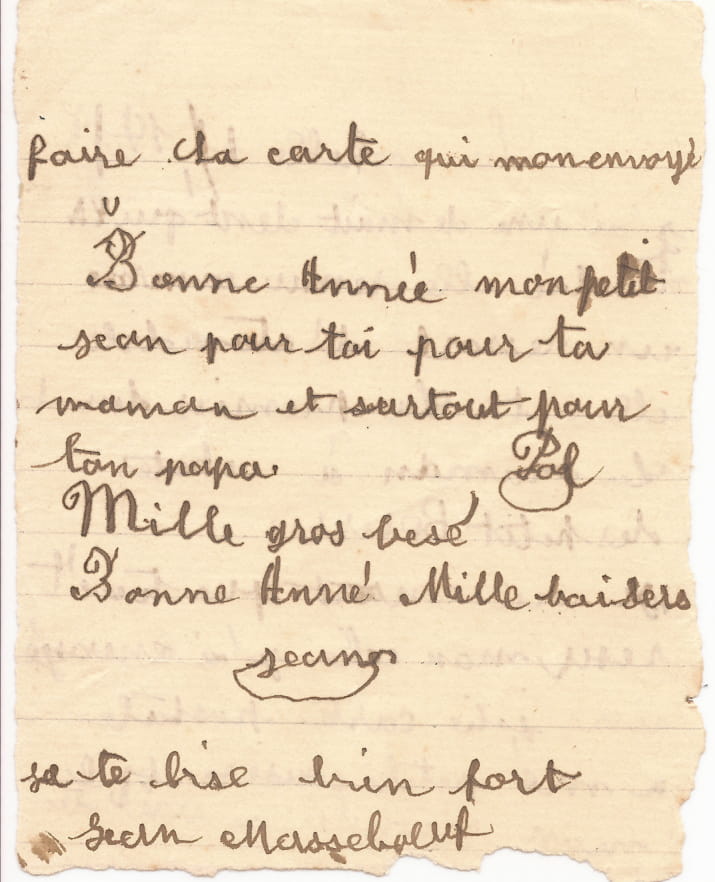 faire la carte qui mon envoyé
Bonne Année mon petit
jean pour toi pour ta
maman et surtout pour
ton papa. Pol
Mille gros besé
Bonne Anné Mille baisers
jean
je te bise bien fort
Jean Masseboeuf